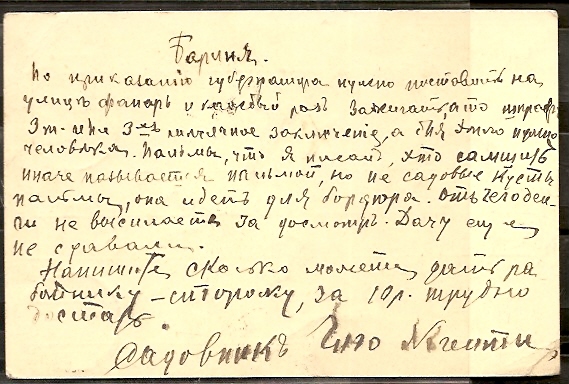 Барыня.
По приказанію губернатора нужно поставить на
улицѣ фонарь и каждый разъ зажигать, а то штраф
3хъ мѣсячное заключеніе, а для этого нужно
человѣка. Пальмы, что я писалъ, это самшитъ
иначе называется пальмой, но не садовые кусты
пальмы, она идетъ для бордюра. Отъ чего день
ги не высилаете за досмотръ. Дачу еще
не сдавали.
Напишите, сколько можете дать ра
ботнику – сторожу, за 10 р. трудно
достать.
Садовникъ